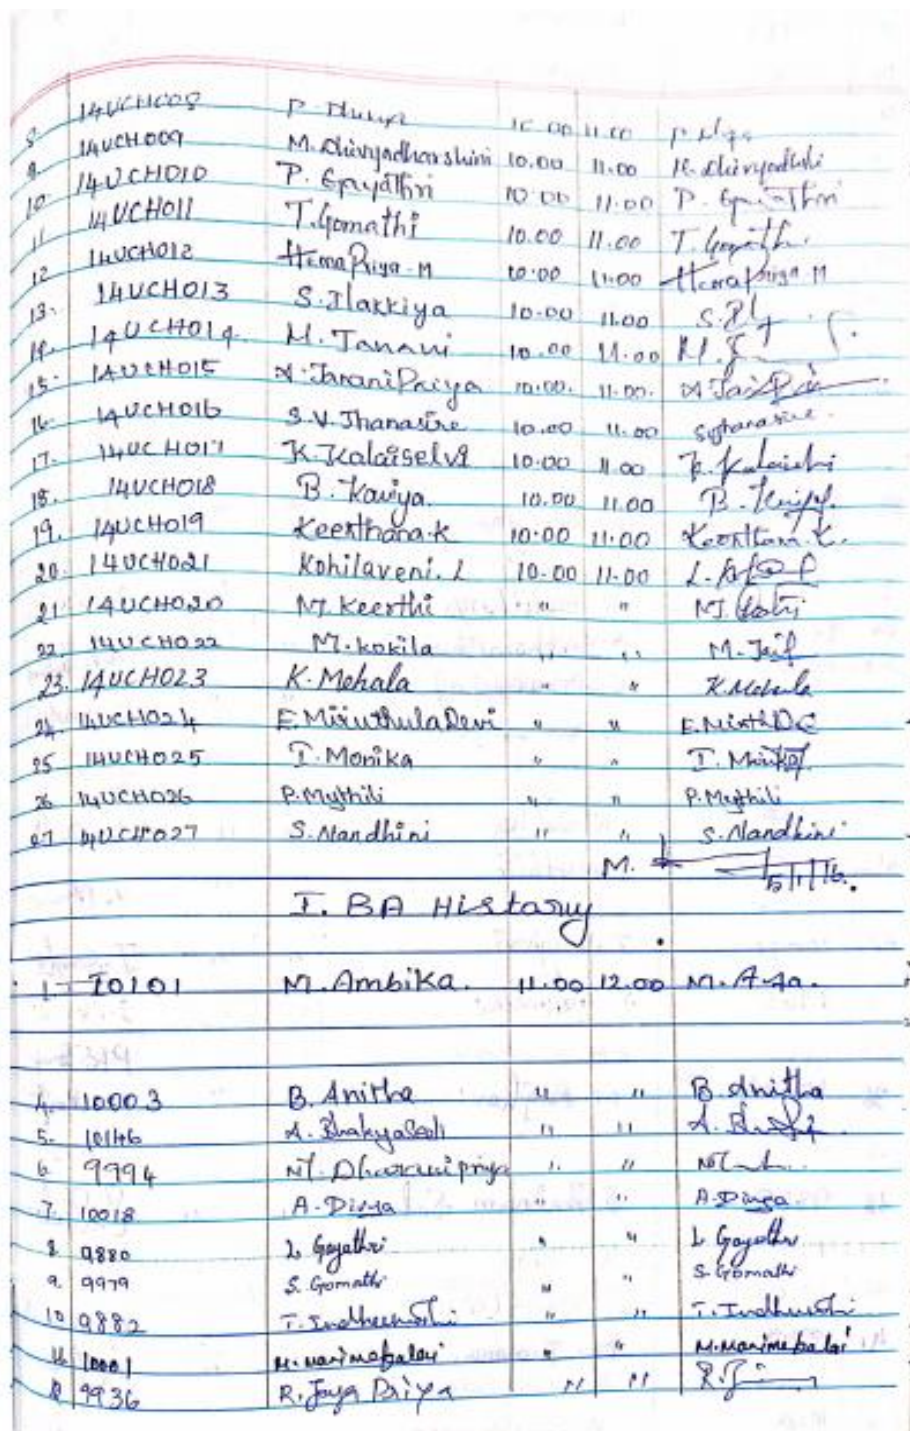 8 14UCHC08 P. 10.00 11.00
9. 14UCH009 M. Dhivyadharshini 10.00 11.00
10 14UCH010 P. Gayathri 10.00 11.00 P. Gayathri
11 14UCH011 T. Gomathi 10.00 11.00 T.
12 14UCH012 HemaPriya. M 10.00 11.00 HemaPriya M
13. 14UCH013 S. Ilakkiya 10.00 11.00 S.
14. 14UCH014. M. Janani 10.00 11.00 M.
15. 14UCH015 A. JananiPriya 10.00. 11.00. A
16. 14UCH016 S.V. Jhanasire 10.00 11.00
17. 14UCH017 K. Kalaiselvi 10.00 11.00 K.
18. 14UCH018 B. Kaviya. 10.00 11.00 B.
19. 14UCH019 Keerthana. K 10.00 11.00 Keerthana. K.
20. 14UCH021 Kohilaveni. L 10.00 11.00 L.
21 14UCH020 M. Keerthi " " M.
22. 14UCH022 M. Kokila " " M.
23. 14UCH023 K. Mehala " " K. Mehala
24. 14UCH024 E. Miruthula Devi " "
25 14UCH025 I. Monika " " I.
26 14UCH026 P. Mythili " " P. Mythili
27 14UCH027 S. Nandhini " " S. Nandhini
M. 5/1/16.
I. BA History
1- 10101 M. Ambika. 11.00 12.00 M.
4. 10003 B. Anitha " " B. Anitha
5. 10146 A. " " A.
6 9994 M. Dharanipriya " "
7. 10018 A. Divya " " A. Divya
8. 9880 L Gayathri " " L Gayathri
9. 9979 S. Gomathi " " S. Gomathi
10 9882 T. " " T.
11. 10001 M. " " M.
12 9936 R. Jaya Priya " " R.